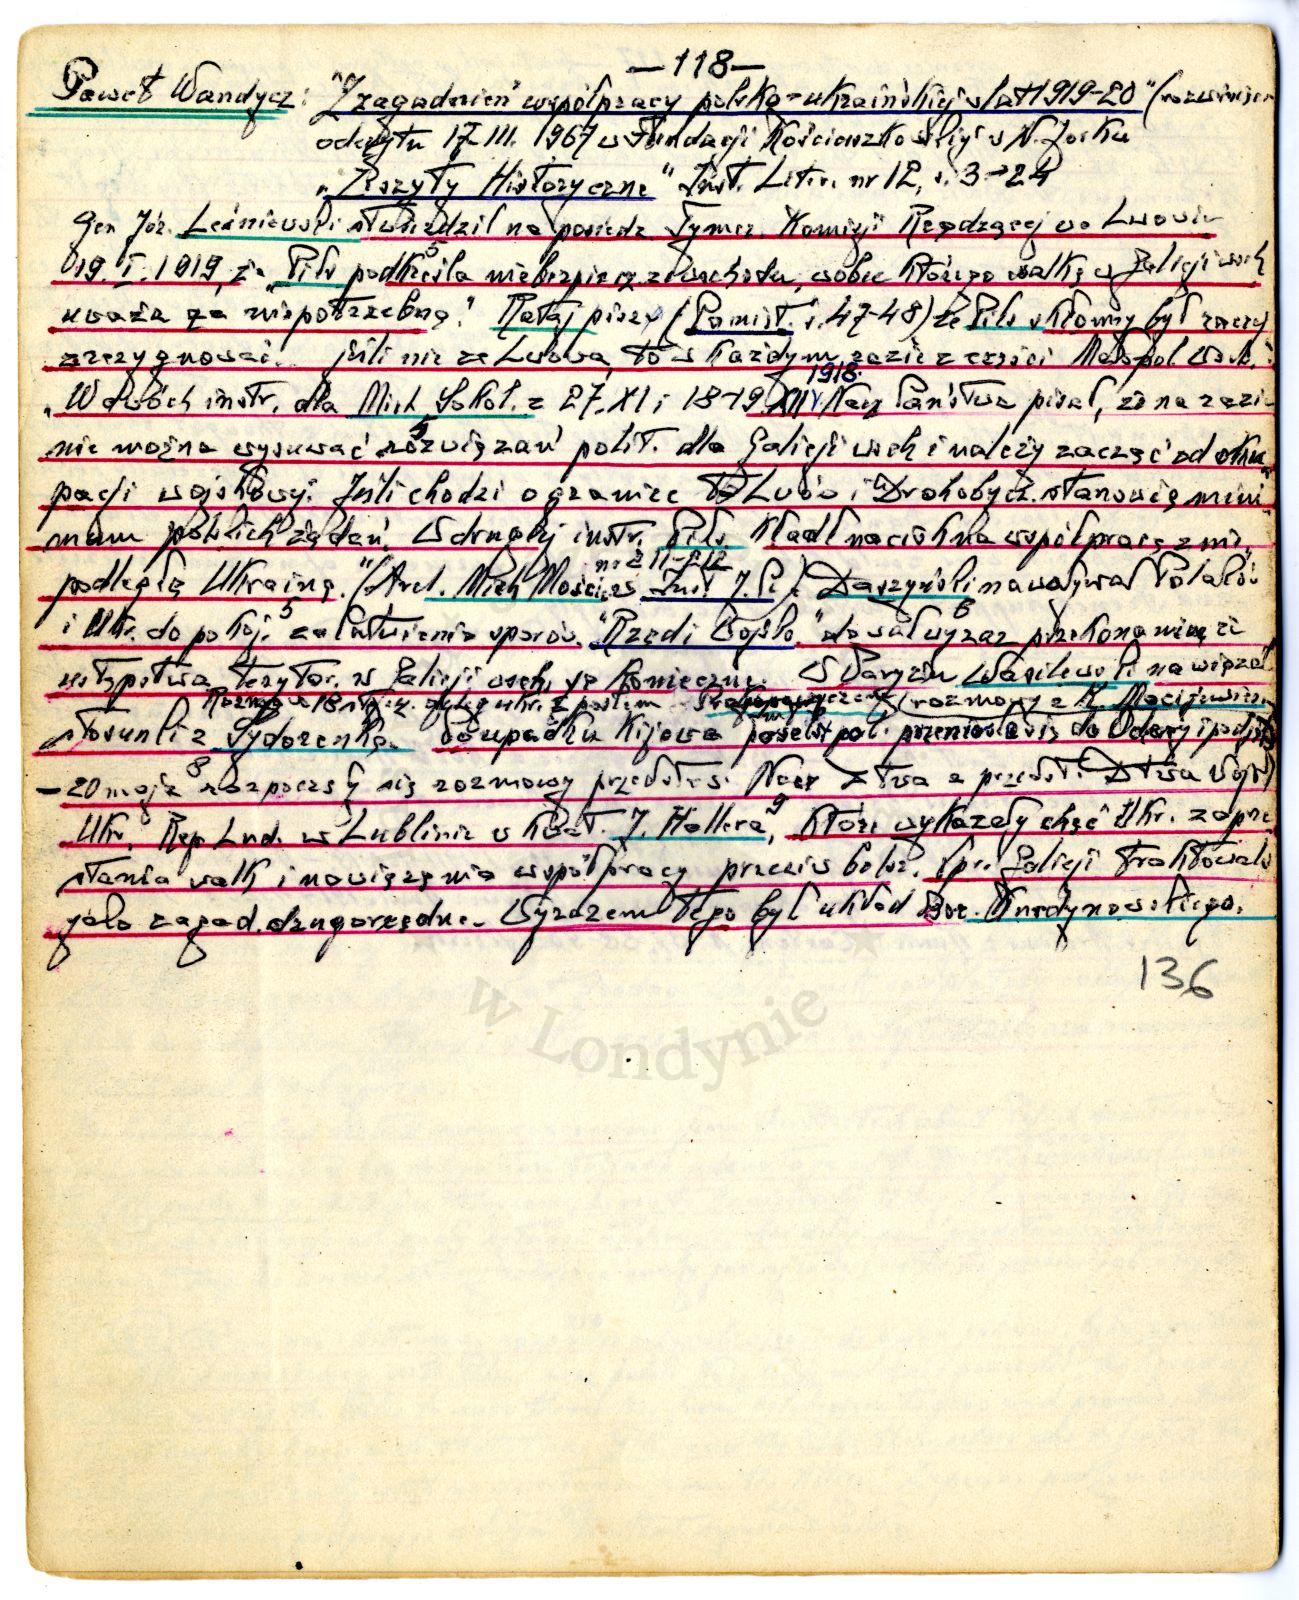 —118—
Paweł Wandycz: "Z zagadnień współpracy polsko-ukraińskiej w lat 1919-20" (rozwinięcie
odczytu 17.III. 1967 w Fundacji Kościuszkowskiej w N. Jorku
"Zeszyty Historyczne" Inst. Liter. nr 12, s. 3-24
Gen Józ. Leśniewski stwierdził na posiedz. Tymcz. Komisji Rządzącej we Lwowie
19. I. 1919, że Piłs podkreśla niebezpiecz. ze wschodu, wobec którego walkę w Galicji wsch
uważa za "niepotrzebną". Rataj pisze (Pamięt. s. 47-48) że Piłs skłonny był raczej
zrezygnować.. jeśli nie ze Lwowa, to w każdym razie z części Małopol. Wsch.:
1918.
"W dwóch instr. dla Mich. Sokol. z 27. XI i 18-19 XII Nacz Państwa pisał, że na razie
nie można wysuwać rozwiązań polit. dla Galicji wsch i należy zacząć od oku-
pacji wojskowej. Jeśli chodzi o granice to Lwów i Drohobycz. stanowią mini-
mum polskich żądań. W drugiej instr. Piłs. kładł nacisk na współpracę z nie-
podległą Ukrainą." (Arch. Mich Mościc. Inst. J. P.). Daszyński nawoływał Polaków
i Ukr. do pokoj. załatwienia sporów. "Rząd i Wojsko" dawał wyraz przekonaniu, że
ustępstwa terytor. w Galicji wsch. są konieczne. W Paryżu Wasilewski nawiązał
(rozmowy z K. Maciejewicz
stosunki z Sydorenką. Po upadku Kijowa poselst. pol. przeniosło się do Odesy i podjęto
- 20 maja rozpoczęły się rozmowy przedst. Nacz D-twa z przedst. D-twa Wojsk
Ukr. Rep. Lud. w Lublinie w kwat. J. Hallera, które wykazały chęć Ukr. zaprze-
stania walk i nawiązania współpracy przeciw bolsz. Spr. Galicji traktowali
jako zagad. drugorzędne. Wyrazem tego był układ Bor. Kurdynowskiego.
136
w Londynie